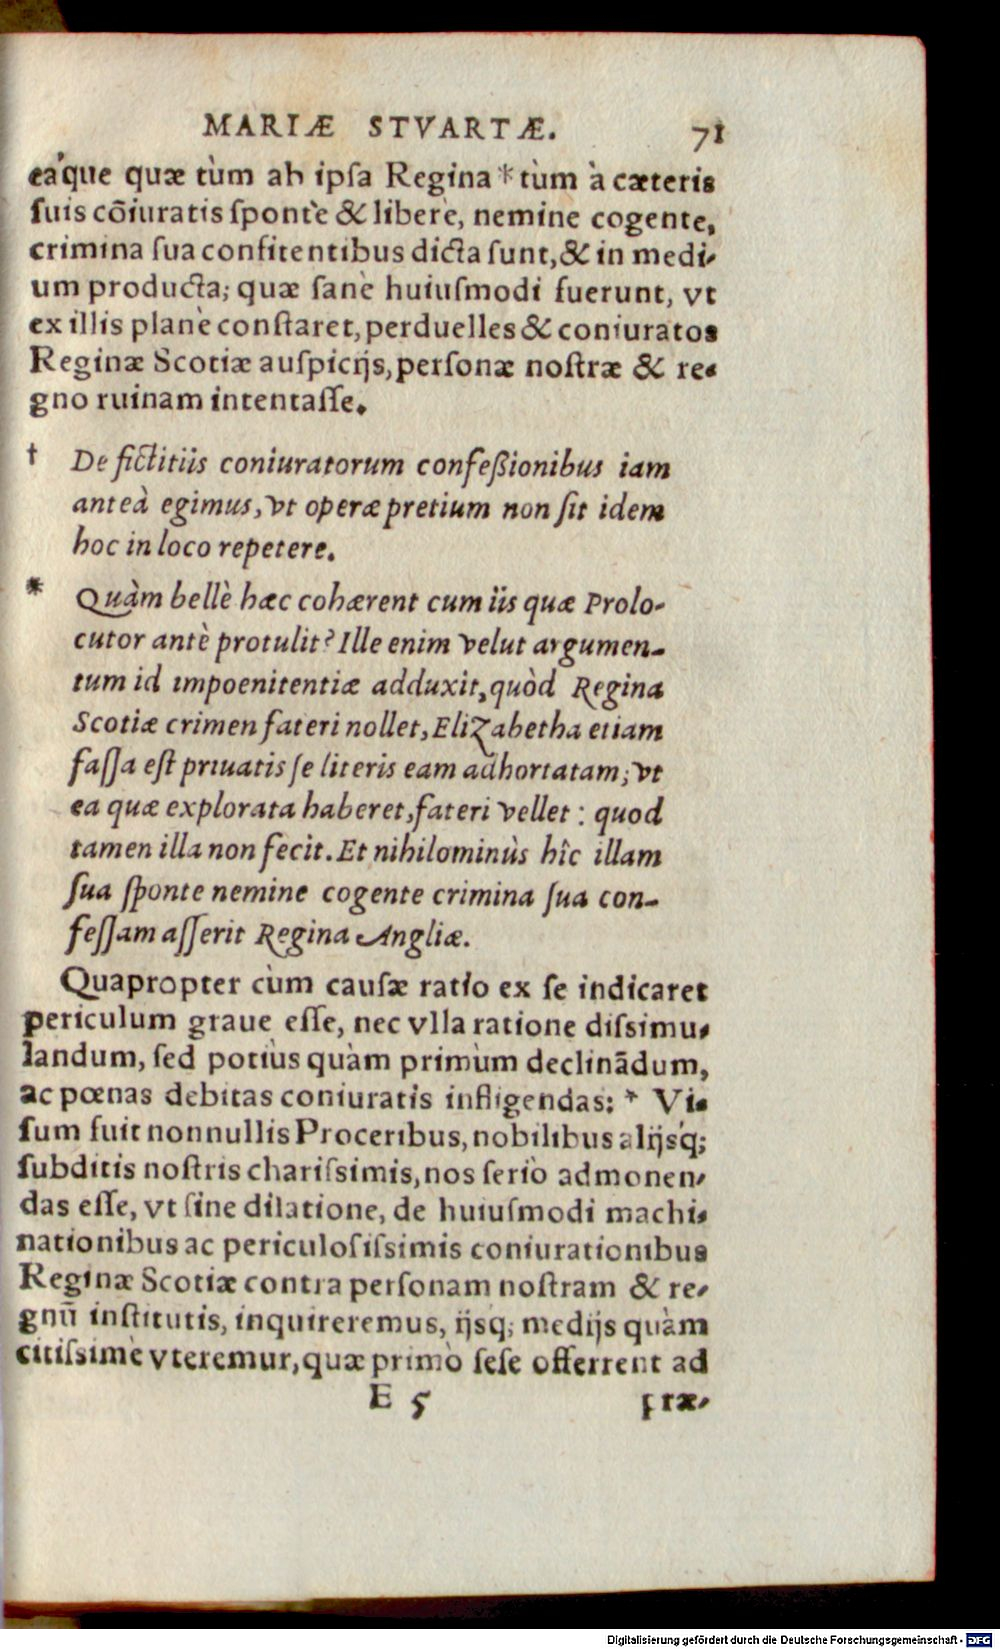 MARIÆ STVARTÆ. 71
eáque quæ tùm ab ipſa Regina * tùm à cæteris
ſuis cōiuratis ſpontè & liberè, nemine cogente,
crimina ſua confitentibus dicta ſunt, & in medi-
um producta; quæ ſanè huiuſmodi fuerunt, vt
ex illis planè conſtaret, perduelles & coniuratos
Reginæ Scotiæ auſpicijs, perſonæ noſtræ & re-
gno ruinam intentaſſe.
† De fictitiis coniuratorum confeßionibus iam
anteà egimus, vt operæ pretium non ſit idem
hoc in loco repetere.
* Quàm bellè hæc cohærent cum iis quæ Prolo-
cutor antè protulit? Ille enim velut argumen-
tum id impoenitentiæ adduxit, quòd Regina
Scotiæ crimen fateri nollet, Elizabetha etiam
faſſa eſt priuatis ſe literis eam adhortatam, vt
ea quæ explorata haberet, fateri vellet: quod
tamen illa non fecit. Et nihilominùs hîc illam
ſua ſponte nemine cogente crimina ſua con-
feſſam aſſerit Regina Angliæ.
Quapropter cùm cauſæ ratio ex ſe indicaret
periculum graue eſſe, nec vlla ratione diſsimu-
landum, ſed potiùs quàm primùm declinādum,
ac pœnas debitas coniuratis infligendas: * Vi-
ſum fuit nonnullis Proceribus, nobilibus alijsq́;
ſubditis noſtris chariſsimis, nos ſeriò admonen-
das eſſe, vt ſine dilatione, de huiuſmodi machi-
nationibus ac periculoſiſsimis coniurationibus
Reginæ Scotiæ contra perſonam noſtram & re-
gnū inſtitutis, inquireremus, ijsq́; medijs quàm
citiſsimè vteremur, quæ primò ſeſe offerrent ad
E 5 præ-
Digitalisierung gefördert durch die Deutsche Forschungsgemeinschaft - DFG